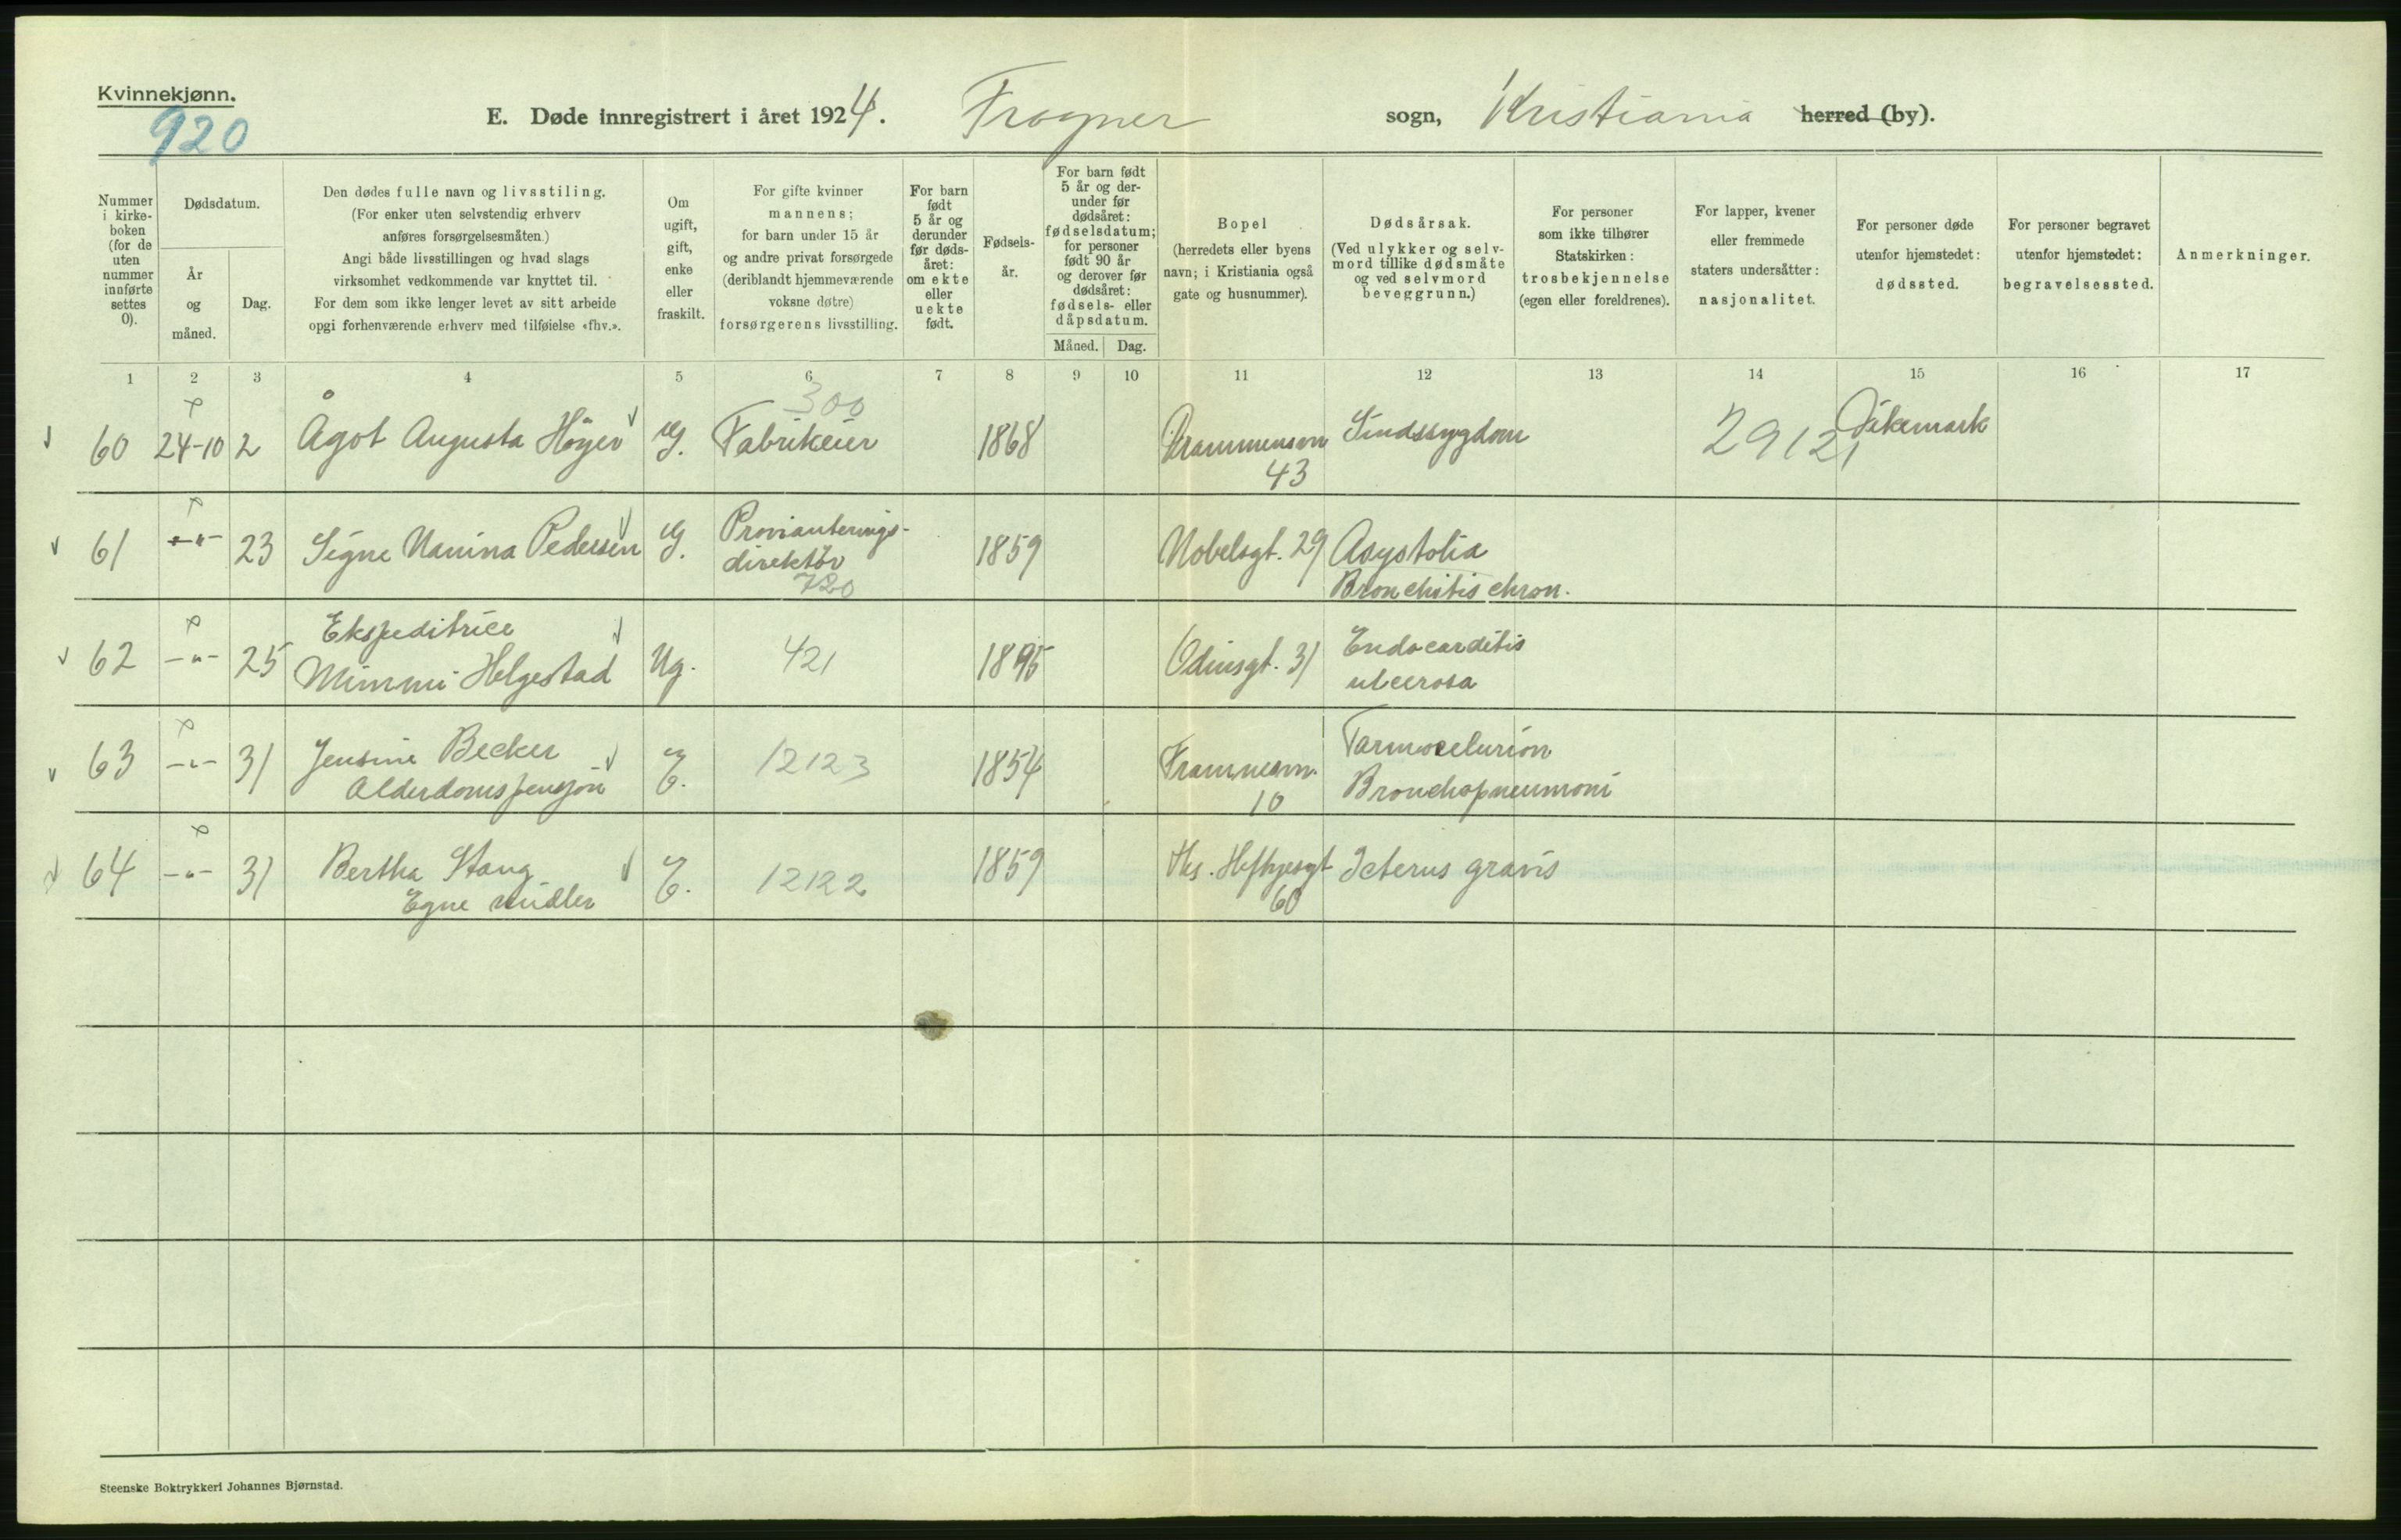 Kvinnekjønn.
920
E. Døde innregistrert i året 1924. Frogner sogn, Kristiania herred (by).
Nummer i kirke-boken (for de uten nummer innførte settes 0).
Dødsdatum.
År og måned.
Dag.
Den dødes fulle navn og livsstiling.
(For enker uten selvstendig erhverv
anføres forsørgelsesmåten.)
Angi både livsstillingen og hvad slags
virksomhet vedkommende var knyttet til.
For dem som ikke lenger levet av sitt arbeide
opgi forhenværende erhverv med tilføielse «fhv.».
Om ugift, gift, enke eller fraskilt.
For gifte kvinner
mannens;
for barn under 15 år
og andre privat forsørgede
(deriblandt hjemmeværende
voksne døtre)
forsørgerens livsstilling.
For barn født 5 år og derunder før døds-året: om ekte eller uekte født.
Fødsels-år.
For barn født 5 år og der-under før dødsåret: fødselsdatum; for personer født 90 år og derover før dødsåret: fødsels- eller dåpsdatum.
Måned. Dag.
Bopel
(herredets eller byens
navn; i Kristiania også
gate og husnummer).
Dødsårsak.
(Ved ulykker og selv-
mord tillike dødsmåte
og ved selvmord
beveggrunn.)
For personer
som ikke tilhører
Statskirken:
trosbekjennelse
(egen eller foreldrenes).
For lapper, kvener
eller fremmede
staters undersåtter:
nasjonalitet.
For personer døde
utenfor hjemstedet:
dødssted.
For personer begravet
utenfor hjemstedet:
begravelsessted.
Anmerkninger.
1 2 3 4 5 6 7 8 9 10 11 12 13 14 15 16 17
300
60 24-10 2 Ågot Augusta Höyer G. Fabrikeier 1868 Drammensvn 43 Sindssygdom 29121 Dikemark
61 -"- 23 Signe Nanina Pedersen G. Provianterings-
direktør
720
1859 Nobelsgt. 29 Asystolia
Bronchitis chron.
62 -"- 25 Ekspeditrice
Mimmi Helgestad Ug. 421 1895 Odinsgt. 31 Endocarditis
ulcerosa
63 -"- 31 Jensine Becker
Alderdomspensjon E. 12123 1854 Framnesvn. 10
Bronchopneumoni
64 -"- 31 Bertha Stang
Egne midler E. 12122 1859 Ths. Heftyesgt 60 Icterus gravis
Steenske Boktrykkeri Johannes Bjørnstad.